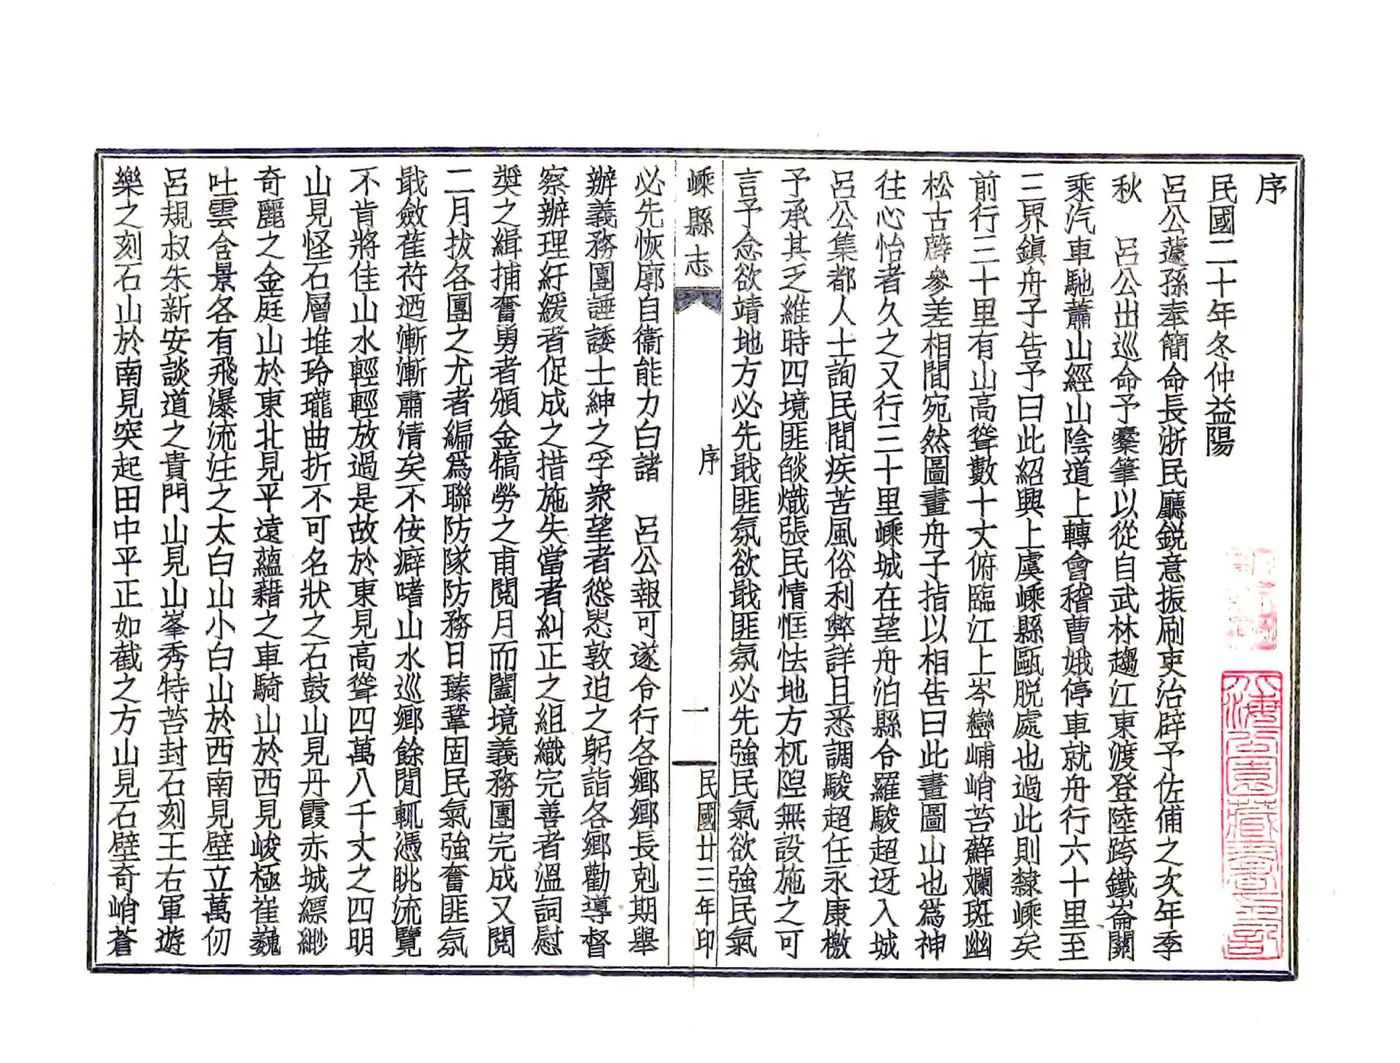 序
民國二十年冬仲益陽
呂公蘧孫奉簡命長浙民廳銳意振刷吏治辟予佐甫之次年季
秋　呂公出巡命予橐筆以從自武林趨江東渡登陸跨鐵崙關
乘汽車馳蕭山經山陰道上轉會稽曹娥停車就舟行六十里至
三界鎮舟子告予曰此紹興上虞嵊縣甌脫處也過此則隸嵊矣
前行三十里有山高聳數十丈俯臨江上岑巒峬峭苔蘚斕斑幽
松古薜參差相間宛然圖畫舟子指以相告曰此畫圖山也為神
往心怡者久之又行三十里嵊城在望舟泊縣令羅駿超迓入城
呂公集都人士詢民間疾苦風俗利弊詳且悉調駿超任永康檄
予承其乏維時四境匪燄熾張民情恇怯地方杌隉無設施之可
言予念欲靖地方必先戢匪氛欲戢匪氛必先強民氣欲強民氣
嵊縣志
序
一
民國廿三年印
必先恢廓自衞能力白諸　呂公報可遂令行各鄉鄉長剋期舉
辦義務團諈諉士紳之孚衆望者慫恿敦迫之躬詣各鄉勸導督
察辦理紆緩者促成之措施失當者糾正之組織完善者溫詞慰
獎之緝捕奮勇者頒金犒勞之甫閱月而闔境義務團完成又閱
二月拔各團之尤者編爲聯防隊防務日臻鞏固民氣強奮匪氛
戢斂萑苻迺漸漸肅清矣不佞癖嗜山水巡鄉餘閒輒憑眺流覽
不肯將佳山水輕輕放過是故於東見高聳四萬八千丈之四明
山見怪石層堆玲瓏曲折不可名狀之石鼓山見丹霞赤城縹緲
奇麗之金庭山於東北見平遠蘊藉之車騎山於西見峻極崔巍
吐雲含景各有飛瀑流注之太白山小白山於西南見壁立萬仞
呂規叔朱新安談道之貴門山見山峯秀特苔封石刻王右軍遊
樂之刻石山於南見突起田中平正如截之方山見石壁奇峭蒼